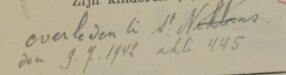 zijn kinderen
overleden te St. Niklaas
den 9.7.1942 akte 445